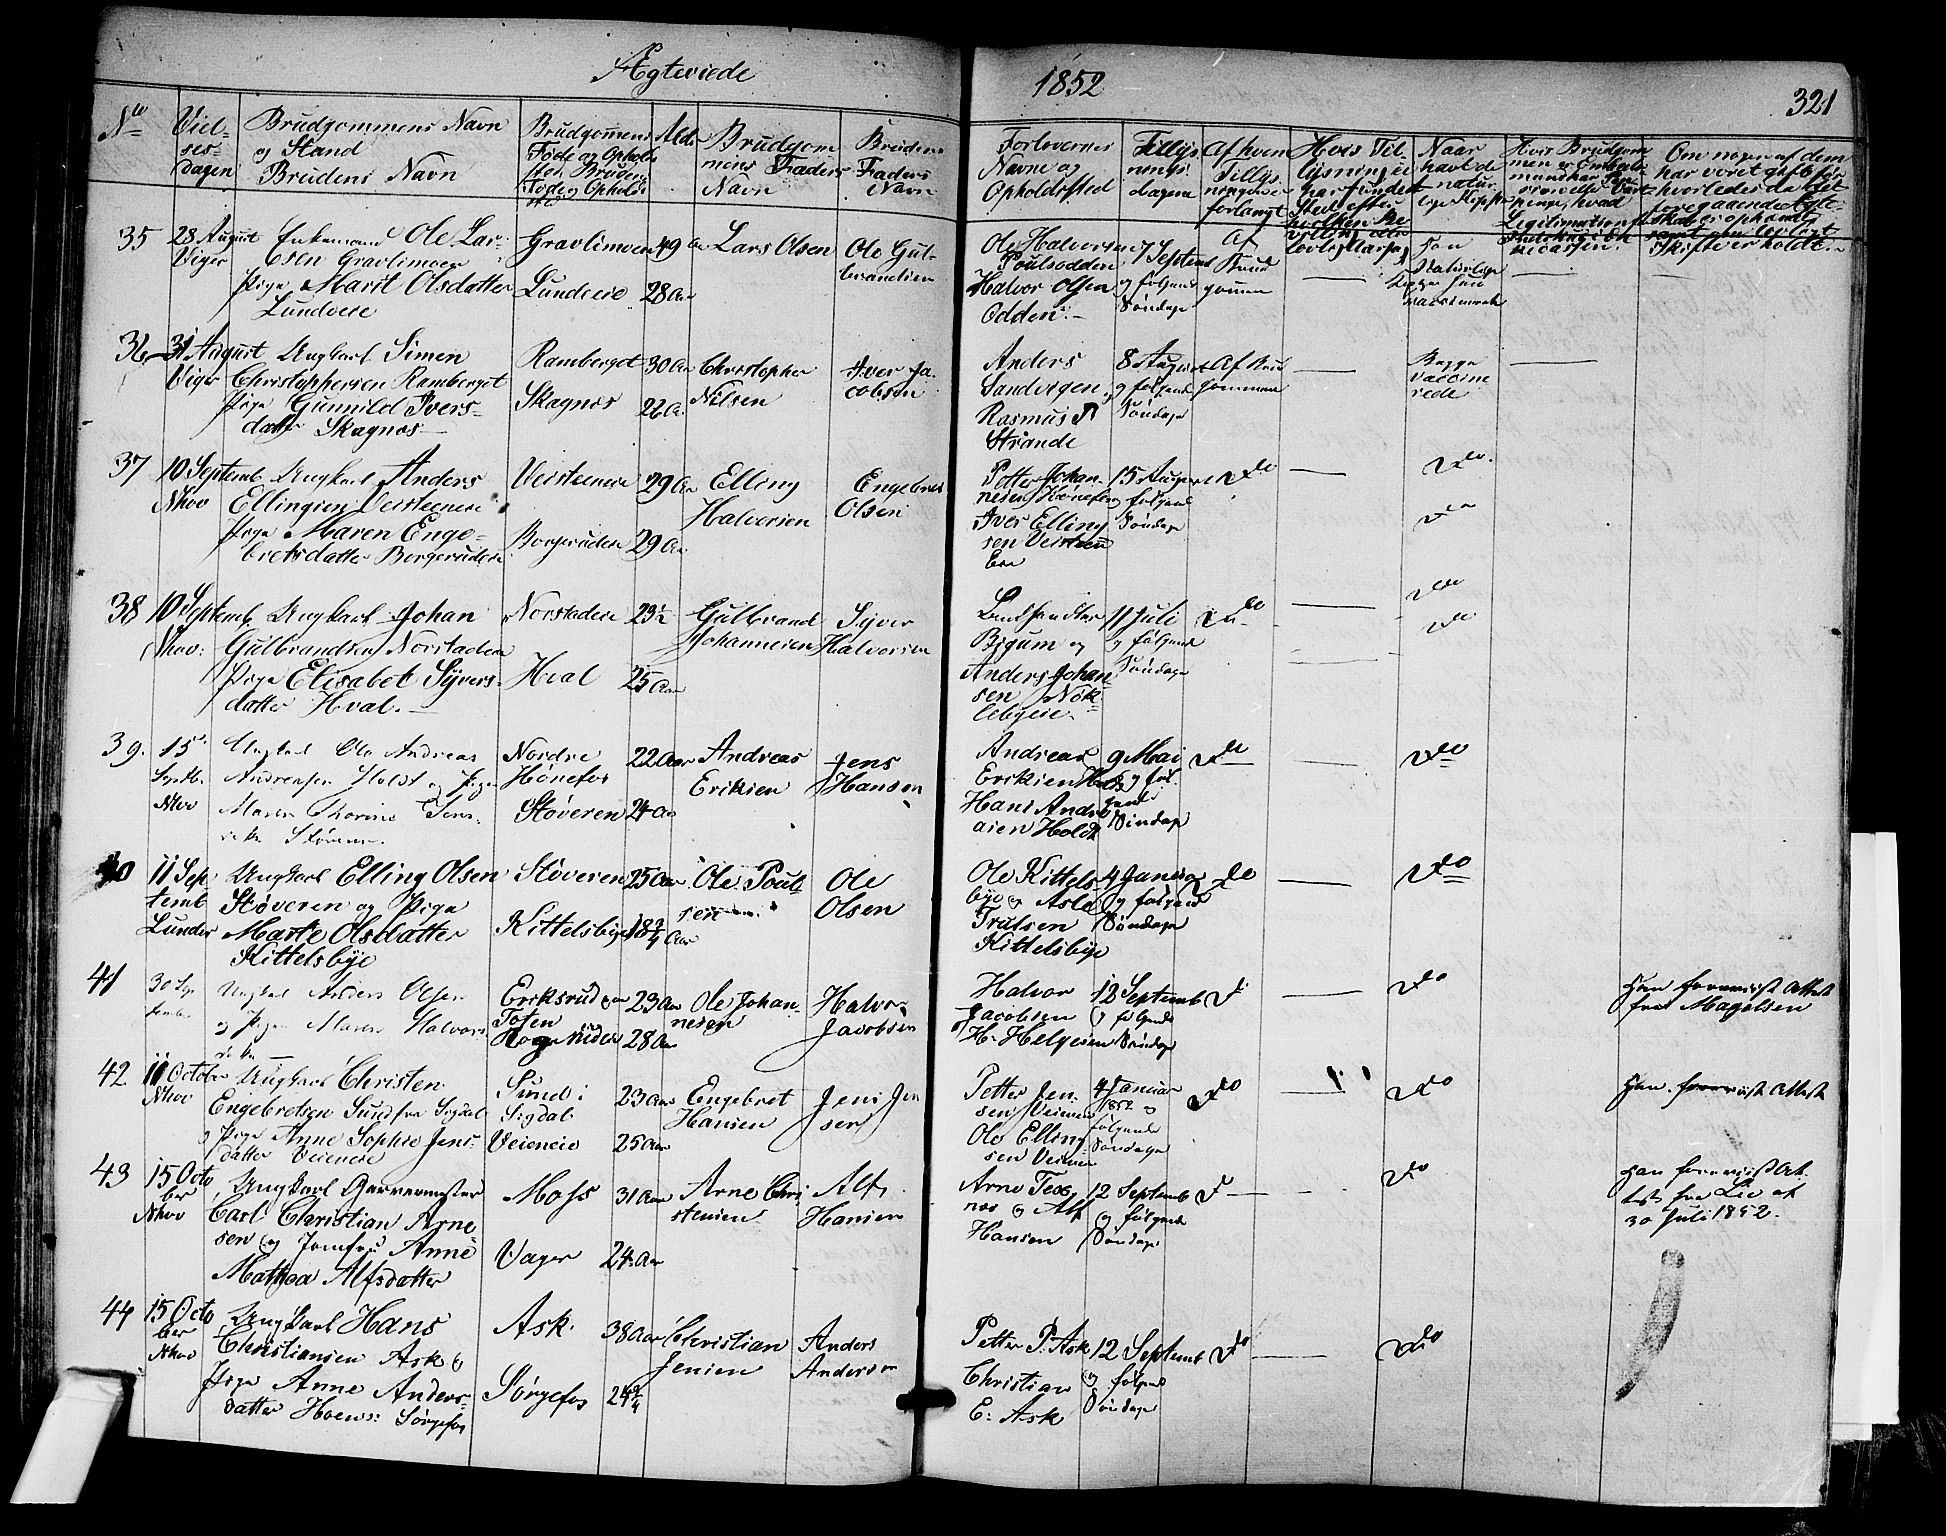 Ægteviede
1852
321
No
Viel-
ses-
dagen
Brudgommens Navn
og Stand
Brudens Navn
Brudgomens
Føde og Opholds
sted, Brudens
Føde og Opholds
sted
Alder
Brudgom
mens Faders
Navn
Brudens
Faders
Navn
Forlovernes
Navne og
Opholdssted
Tillys-
nings-
dagene
Af hvem
Tillys-
ningen er
forlangt
Hvis Til-
lysning ei
har fundet
Sted efter
Naar
havt de
natur-
lige Kopper
Hvis Brudgom
men er Embeds-
mand har
Legitimation
Om nogen af dem
har været gift før
hvorledes da det
foregaaende Ægte-
skab er ophævet
Skifte er holdt
35
28 August
Viger
Enkemand Ole Lar-
sen Gravlimoen
Pige Marit Olsdatter
Lundveie
Gravlimoen
Lundeeie
49 Aar
28 Aar
Lars Olsen
Ole Gul-
brandsen
Ole Halvorsen
Poulsodden
Halvor Olsen
Odden.-
7 Septemb
og følgende
Søndage
Af
Brud
gommen
36
31 August
Viger
Ungkarl Simen
Christophersen Ramberget
Pige Gunnild Ivers-
datter Skagnæs
Ramberget
Skagnæs
30 Aar
26 Aar
Christopher
Nilsen
Iver Ja-
cobsen
Anders
Sandvigen og
Rasmus P
Strande
8 August
og følgende
Søndage
Af Brud
gommen
Begge
vaccine
rede
37
10 Septemb
Nhov
Ungkarl Anders
Ellingsen Veisteeneie
Pige Maren Enge-
bretsdatter Borgerudeie
Veisteeneie
Borgerudeie
29 Aar
29 Aar
Elling
Halvorsen
Engebret
Olsen
Petter Johan-
nesen Hønefos
Iver Elling
sen Veisteen
Eie
15 August
og følgende
Søndage
do
do
do
38
10 Septemb
Nhov:
Ungkarl Johan
Gulbrandsen Norstadeie
Pige Elisabet Syvers-
datter Hval.
Norstadeie
Hval
23½
25 Aar
Gulbrand
Johannesen
Syver
Halvorsen
Landhandler
Bjgum og
Anders Johan
sen Nøk-
lebyeie
11 Juli
og følgende
Søndage
do
do
do
39.
15
Septb.
Nhov
Ungkarl Ole Andreas
Andreassen Holdt og Pige
Maren Thorine Jens-
datter Støveren.
Nordre
Hønefos
Støveren
22 Aar
24 Aar
Andreas
Eriksen
Jens
Hansen
Andreas
Eriksen Holdt
Hans Andre
asen Holdt
9 Mai
og føl
gende
Søndage
do
do
40
11 Sep-
temb
Lunder
Ungkarl Elling Olsen
Støveren og Pige
Marte Olsdatter
Kittelsbye
Støveren
Kittelsbye
25 Aar
18¾ Aar
Ole Poul
sen
Ole
Olsen
Ole Kittels-
bye og Asle
Trulsen
Kittelsbye
4 Januar
og følgende
Søndage
do
do
41
30 Sep
tember
Ungkarl Anders Olsen
og Pige Maren Halvors
datter
Eriksrud
Toten
23 Aar
28 Aar
Ole Johan-
nesen
Halvor
Jacobsen
Halvor
Jacobsen
H. Helgesen
12 Septemb
og følgende
Søndage
do
do
Han foreviist Attest
fra Magelsen
42
11 October
Nhov
Ungkarl Christen
Engebretsen Sund fra Sigdal
og Pige Anne Sophie Jens-
datter Veieneie
Sund i
Sigdal
Veieneie
23 Aar
25 Aar
Engebret
Hansen
Jens Jen
sen
Petter Jen-
sen Veien
Ole Elling-
sen Veien
4 Januar
1852 og
følgende
Søndage
do
do
Han foreviist Attest
43
15 Octo
ber
Nhov
Ungkarl Garvermester
Carl Christian Arne-
sen og Jomfru Anne
Mathea Alfsdatter
Moss
Vager
31 Aar
24 Aar
Arne Chri
stensen
Alf
Hansen
Arne Tes
næs og Alf
Hansen
12 Septemb
og følgende
Søndage
do
do
Han foreviist At
test fra Lie af
30 Juli 1852.
44
15 Octo
ber
Nhov
Ungkarl Hans
Christiansen Ask og
Pige Anne Anders-
datter Hoens: Sørgefos
Ask
Sørgefos
38 Aar
24¾
Christian
Jensen
Anders
Andersen
Petter P. Ask
Christian
E: Ask
12 Septemb
og følgende
Søndage
do
do